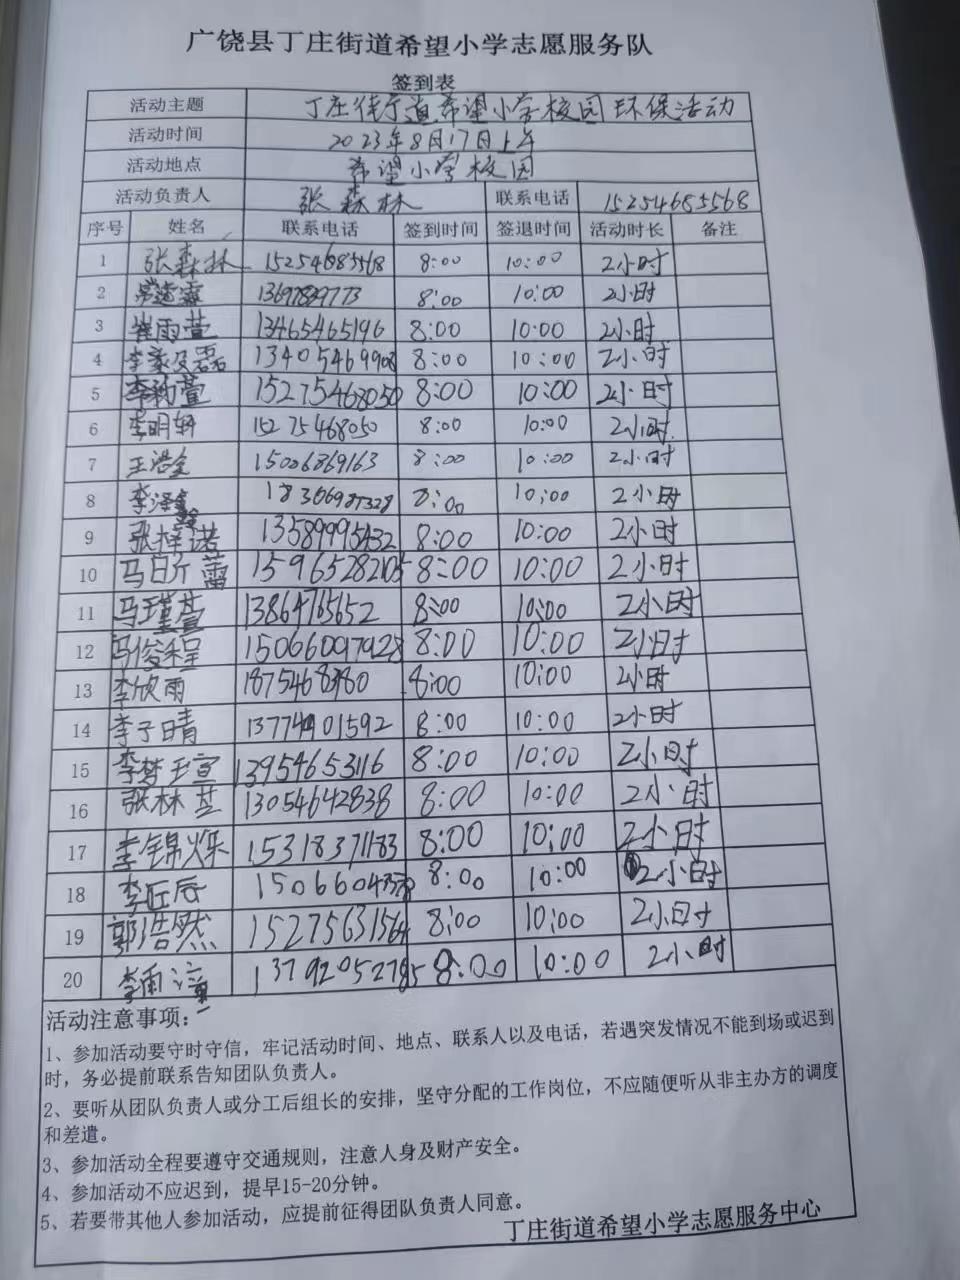 广饶县丁庄街道希望小学志愿服务队
签到表
活动主题 丁庄街道希望小学校园环保活动
活动时间 2023年8月17日上午
活动地点 希望小学校园
活动负责人 张森林 联系电话 15254685568
序号 姓名 联系电话 签到时间 签退时间 活动时长 备注
1 张森林 15254685568 8:00 10:00 2小时
2 8:00 10:00 2小时
3 崔雨萱 13465465196 8:00 10:00 2小时
4 8:00 10:00 2小时
5 15275468050 8:00 10:00 2小时
6 李明轩 15275468050 8:00 10:00 2小时
7 王浩全 15006869163 8:00 10:00 2小时
8 18306987328 8:00 10:00 2小时
9 张梓诺 13589995432 8:00 10:00 2小时
10 15965282105 8:00 10:00 2小时
11 马瑾萱 13864765652 8:00 10:00 2小时
12 冯俊程 15066097928 8:00 10:00 2小时
13 李欣雨 18754683780 8:00 10:00 2小时
14 李子晴 13774901592 8:00 10:00 2小时
15 李梦玉宣 13954653116 8:00 10:00 2小时
16 13054642838 8:00 10:00 2小时
17 李锦烁 15318371183 8:00 10:00 2小时
18 李匠辰 8:00 10:00 2小时
19 郭浩然 15275631564 8:00 10:00 2小时
20 13792052785 8:00 10:00 2小时
活动注意事项:
1、参加活动要守时守信，牢记活动时间、地点、联系人以及电话，若遇突发情况不能到场或迟到
时，务必提前联系告知团队负责人。
2、要听从团队负责人或分工后组长的安排，坚守分配的工作岗位，不应随便听从非主办方的调度
和差遣。
3、参加活动全程要遵守交通规则，注意人身及财产安全。
4、参加活动不应迟到，提早15-20分钟。
5、若要带其他人参加活动，应提前征得团队负责人同意。
丁庄街道希望小学志愿服务中心